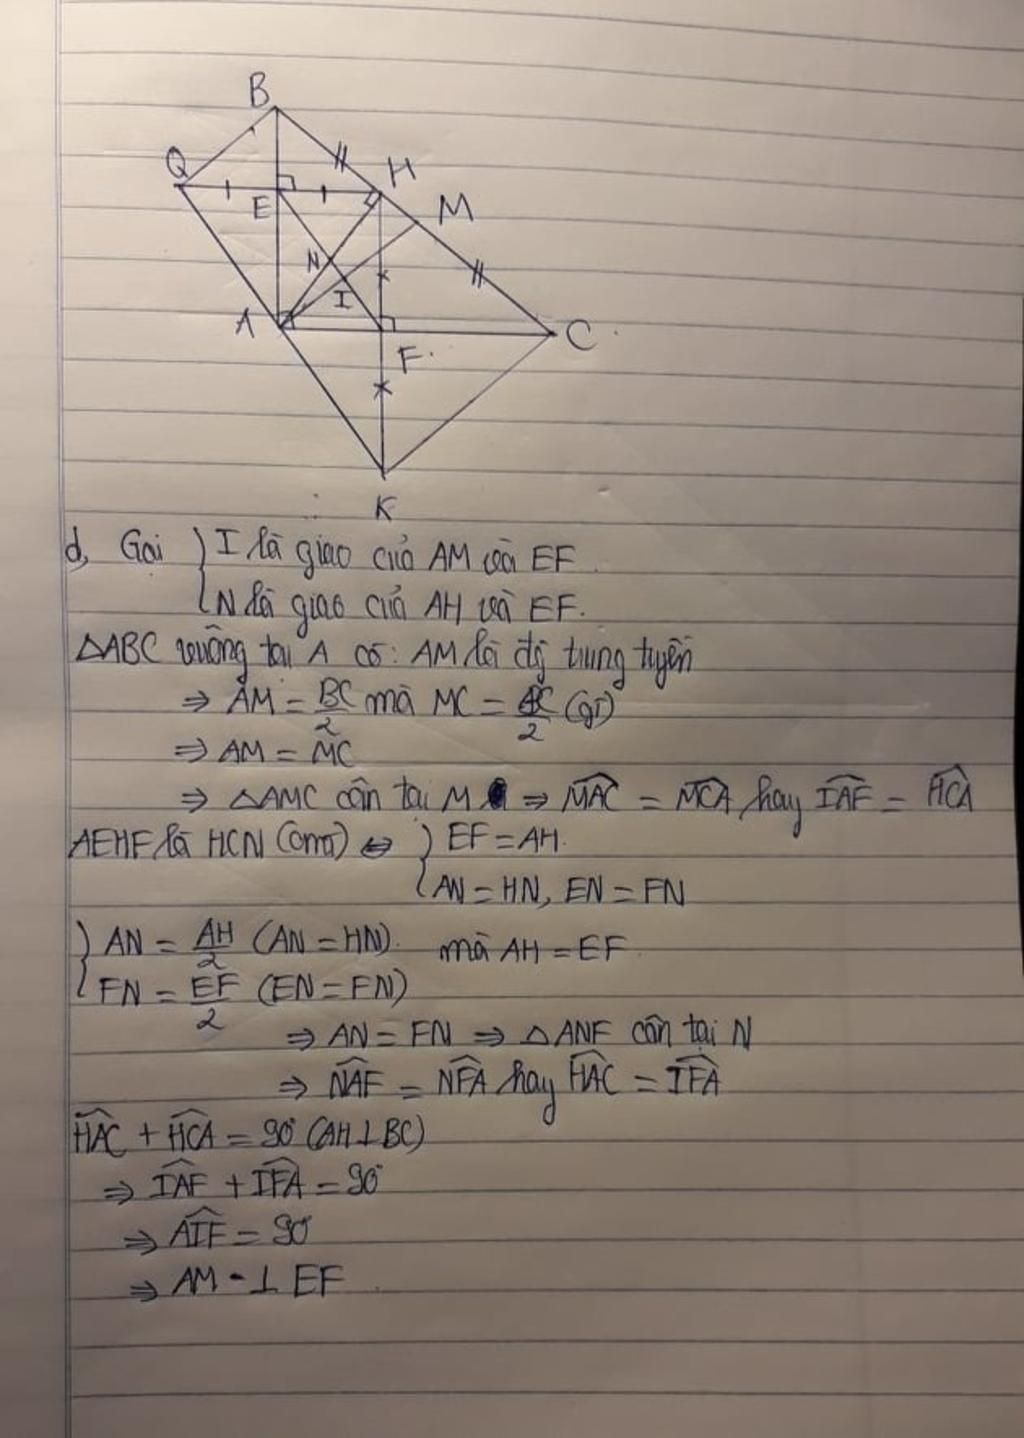 B
Q
H
E
M
N
I
A
C
F
K
d, Gọi { I là giao của AM và EF
N là giao của AH và EF.
△ABC vuông tại A có: AM là đg trung tuyến
⇒ AM = BC/2 mà MC = BC/2 (gt)
⇒ AM = MC
⇒ △AMC cân tại M ⇒ \widehat{MAC} = \widehat{MCA} hay \widehat{IAF} = \widehat{HCA}
AEHF là HCN (cmt) ⇔ { EF = AH.
AN = HN, EN = FN
{ AN = AH/2 (AN = HN). mà AH = EF
FN = EF/2 (EN = FN)
⇒ AN = FN ⇒ △ANF cân tại N
⇒ \widehat{NAF} = \widehat{NFA} hay \widehat{HAC} = \widehat{IFA}
\widehat{HAC} + \widehat{HCA} = 90° (AH⊥BC)
⇒ \widehat{IAF} + \widehat{IFA} = 90°
⇒ \widehat{AIF} = 90°
⇒ AM ⊥ EF